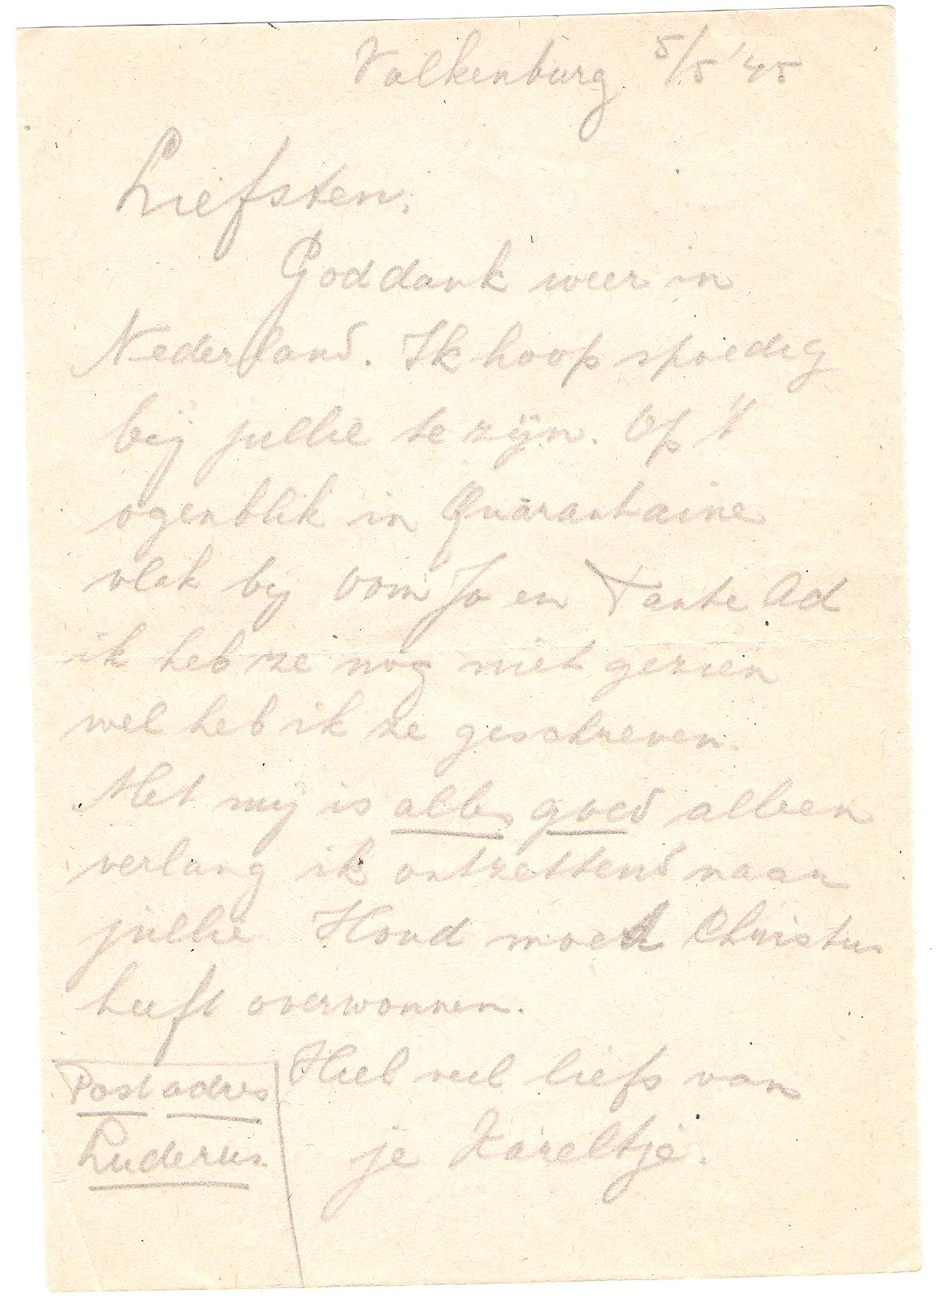 Valkenburg 5/5 '45
Liefsten.
Goddank weer in
Nederland. Ik hoop spoedig
bij jullie te zijn. Op 't
ogenblik in Quarantaine
vlak bij Oom Jo en Tante Ad
ik heb ze nog niet gezien
wel heb ik ze geschreven.
Met mij is alles goed alleen
verlang ik ontzettend naar
jullie Houd moed Christus
heeft overwonnen.
Heel veel liefs van
je Kareltje.
Postadres
Luderus.